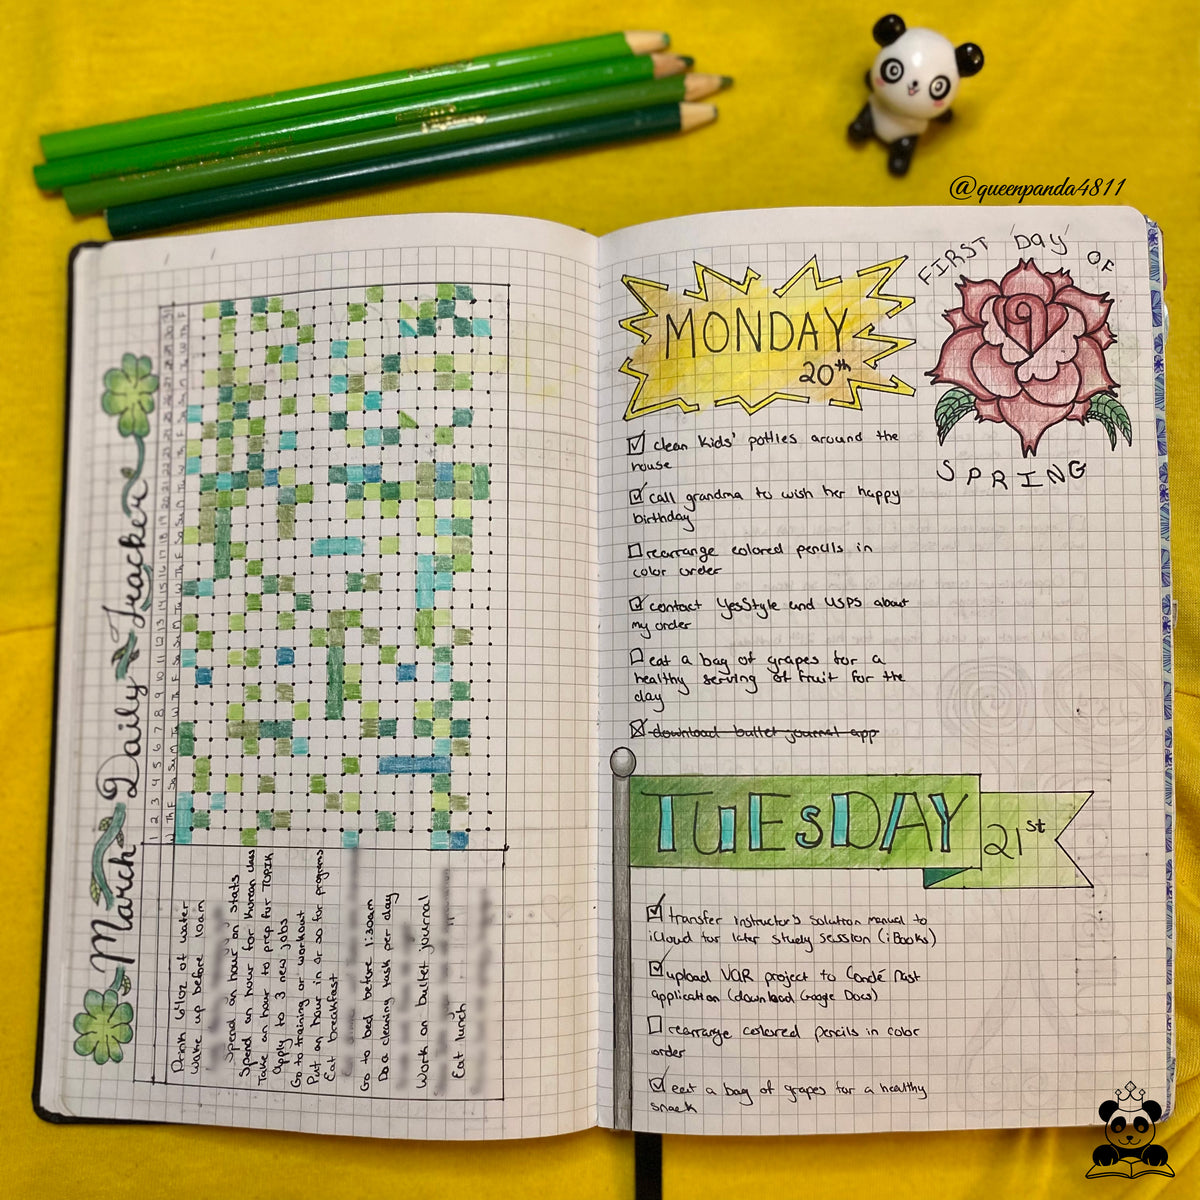 @queenpanda4811
March Daily Tracker
1 2 3 4 5 6 7 8 9 10 11 12 13 14 15 16 17 18 19 20 21 22 23 24 25 26 27 28 29 30 31
W Th F Sa Su M Tu W Th F Sa Su M Tu W Th F Sa Su M Tu W Th F Sa Su M Tu W Th F
Drink 64oz of water
Wake up before 10am
Spend an hour on stats
Spend an hour for Korean class
Take an hour to prep for TOPIK
Apply to 3 new jobs
Go to training or workout
Put an hour in or so for programs
Eat breakfast
Go to bed before 1:30am
Do a cleaning task per day
Work on bullet journal
Eat lunch
MONDAY
20th
FIRST Day OF
SPRING
clean kids' potties around the
house
call grandma to wish her happy
birthday
rearrange colored pencils in
color order
contact YesStyle and USPS about
my order
eat a bag of grapes for a
healthy serving of fruit for the
day
download bullet journal app
TUEsDAY
21st
transfer instructor's solution manual to
iCloud for later study session (iBooks)
upload VQR project to Condé Nast
application (download Google Docs)
rearrange colored pencils in color
order
eat a bag of grapes for a healthy
snack